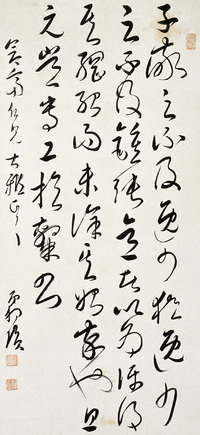 子敬之不及逸少猶逸少
之不及鍾張意者以為評得
其綱紀而未詳其始卒也且
元常專工於隸書
仁兄大雅正